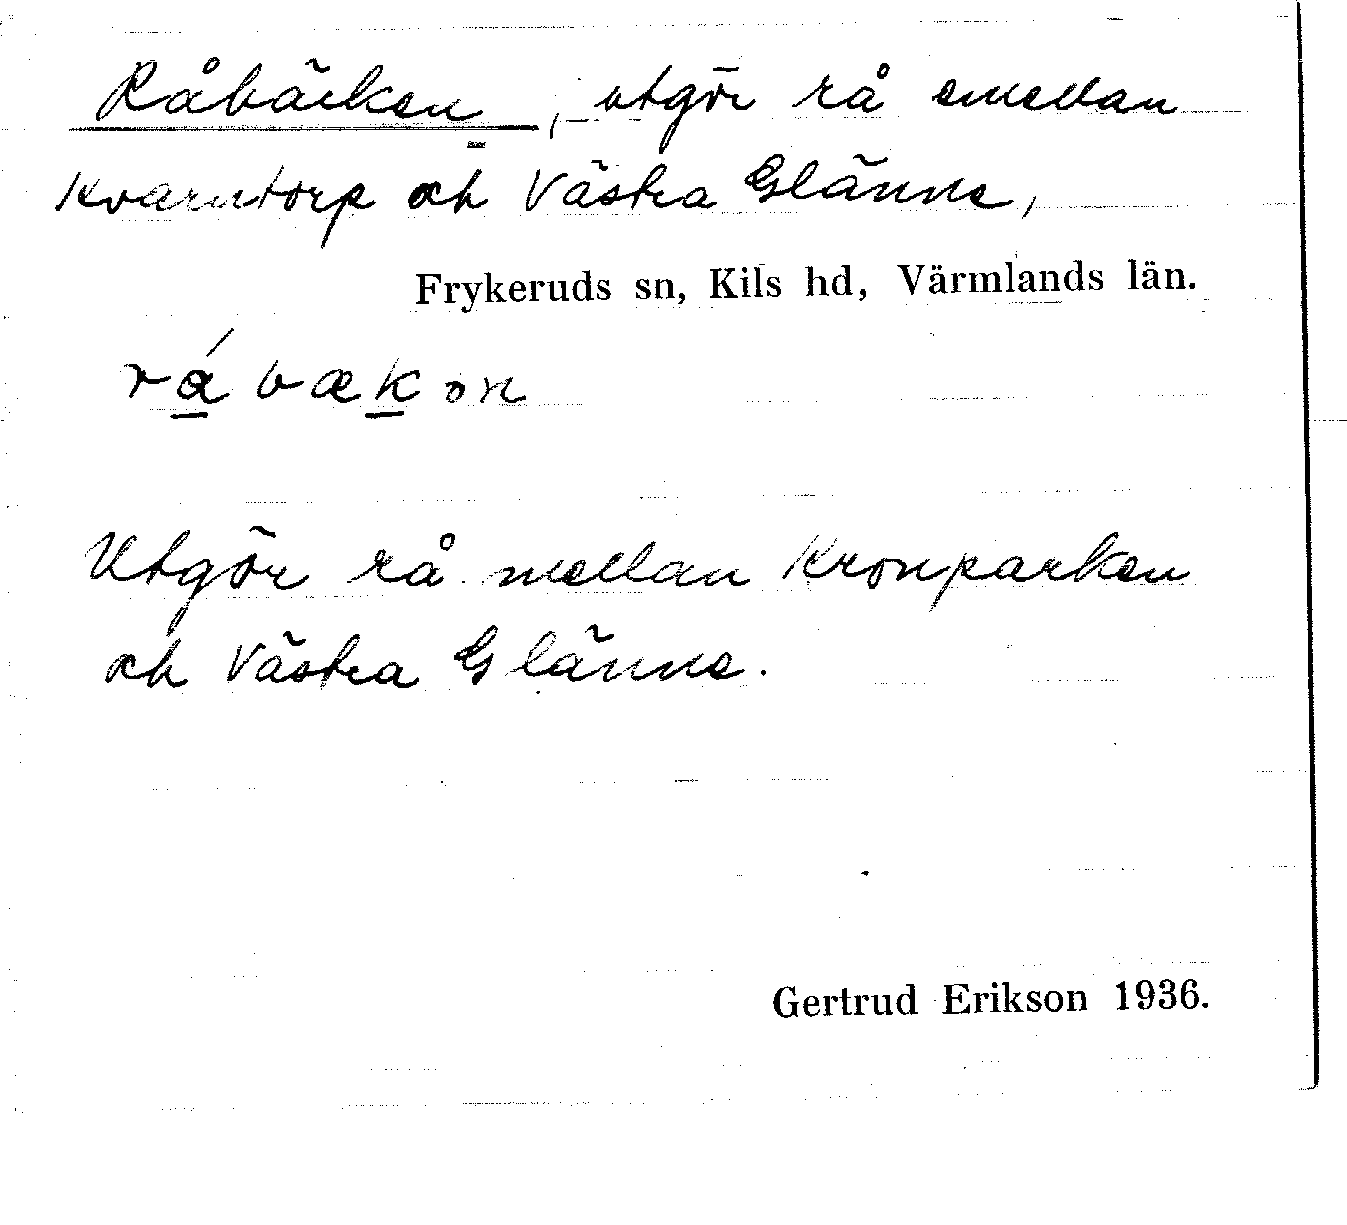 Råbäcken, utgör rå emellan
Kvarntorp och Västra Glänne,
Frykeruds sn, Kils hd, Värmlands län.
råbækən
Utgör rå mellan Kronparken
och Västra Glänne.
Gertrud Erikson 1936.